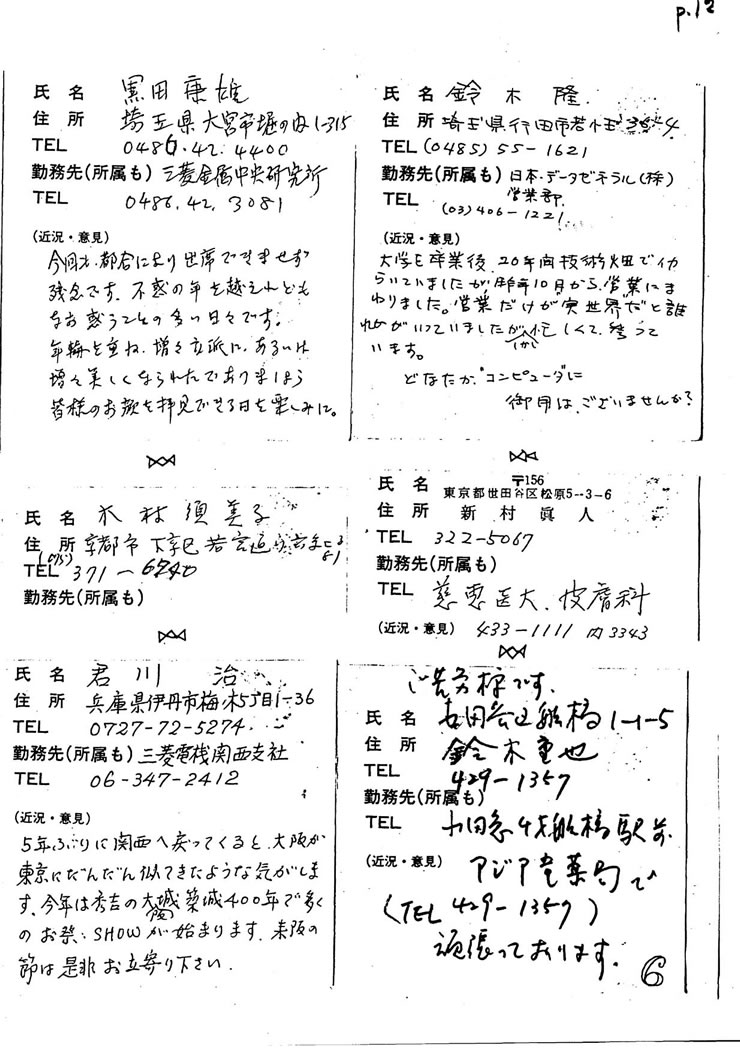 p.12
氏 名 黒田康雄
住 所 埼玉県大宮市堀の内1-315
TEL 0486.42.4400
勤務先(所属も) 三菱金属中央研究所
TEL 0486.42.3081
(近況・意見)
今回は、都合により出席できませず
残念です。不惑の年を越えれども
なお惑うことの多い日々です。
年輪を重ね、増々立派に、あるいは
増々美しくなられたでありましょう
皆様のお顔を拝見できる日を楽しみに。
氏 名 鈴木 隆
住 所 埼玉県行田市若小玉
TEL (0485) 55-1621
勤務先(所属も) 日本・データゼネラル(株)
営業部
TEL (03) 406-1221
(近況・意見)
大学を卒業後、20年間技術畑で仂
らいていましたが昨年10月から、営業にま
わりました。営業だけが実世界だと誰
れかがいっていましたが、忙しくて、参って
います。
どなたか、コンピュータに
御用は、ございませんか?
氏 名 木村須美子
住 所 京都市下京区若宮通り
(075)
TEL 371-6240
勤務先(所属も)
〒156
氏 名 東京都世田谷区松原5--3-6
住 所 新村眞人
TEL 322-5067
勤務先(所属も)
TEL 慈恵医大、皮膚科
(近況・意見) 433-1111 内3343
氏 名 君川 治
住 所 兵庫県伊丹市梅ノ木5丁目1-36
TEL 0727-72-5274
勤務先(所属も) 三菱電機関西支社
TEL 06-347-2412
(近況・意見)
5年ぶりに関西へ戻ってくると、大阪が
東京にだんだん似てきたような気がしま
す。今年は秀吉の大城築城400年で多く
閣
のお祭、SHOWが始まります。来阪の
節は是非お立寄り下さい.
ご苦労様です.
氏 名 船橋1-1-5
住 所 鈴木重也
TEL 429-1357
勤務先(所属も)
TEL 小田急 船橋駅前
(近況・意見) アジア 薬局で
(TEL 429-1357)
頑張っております.
6